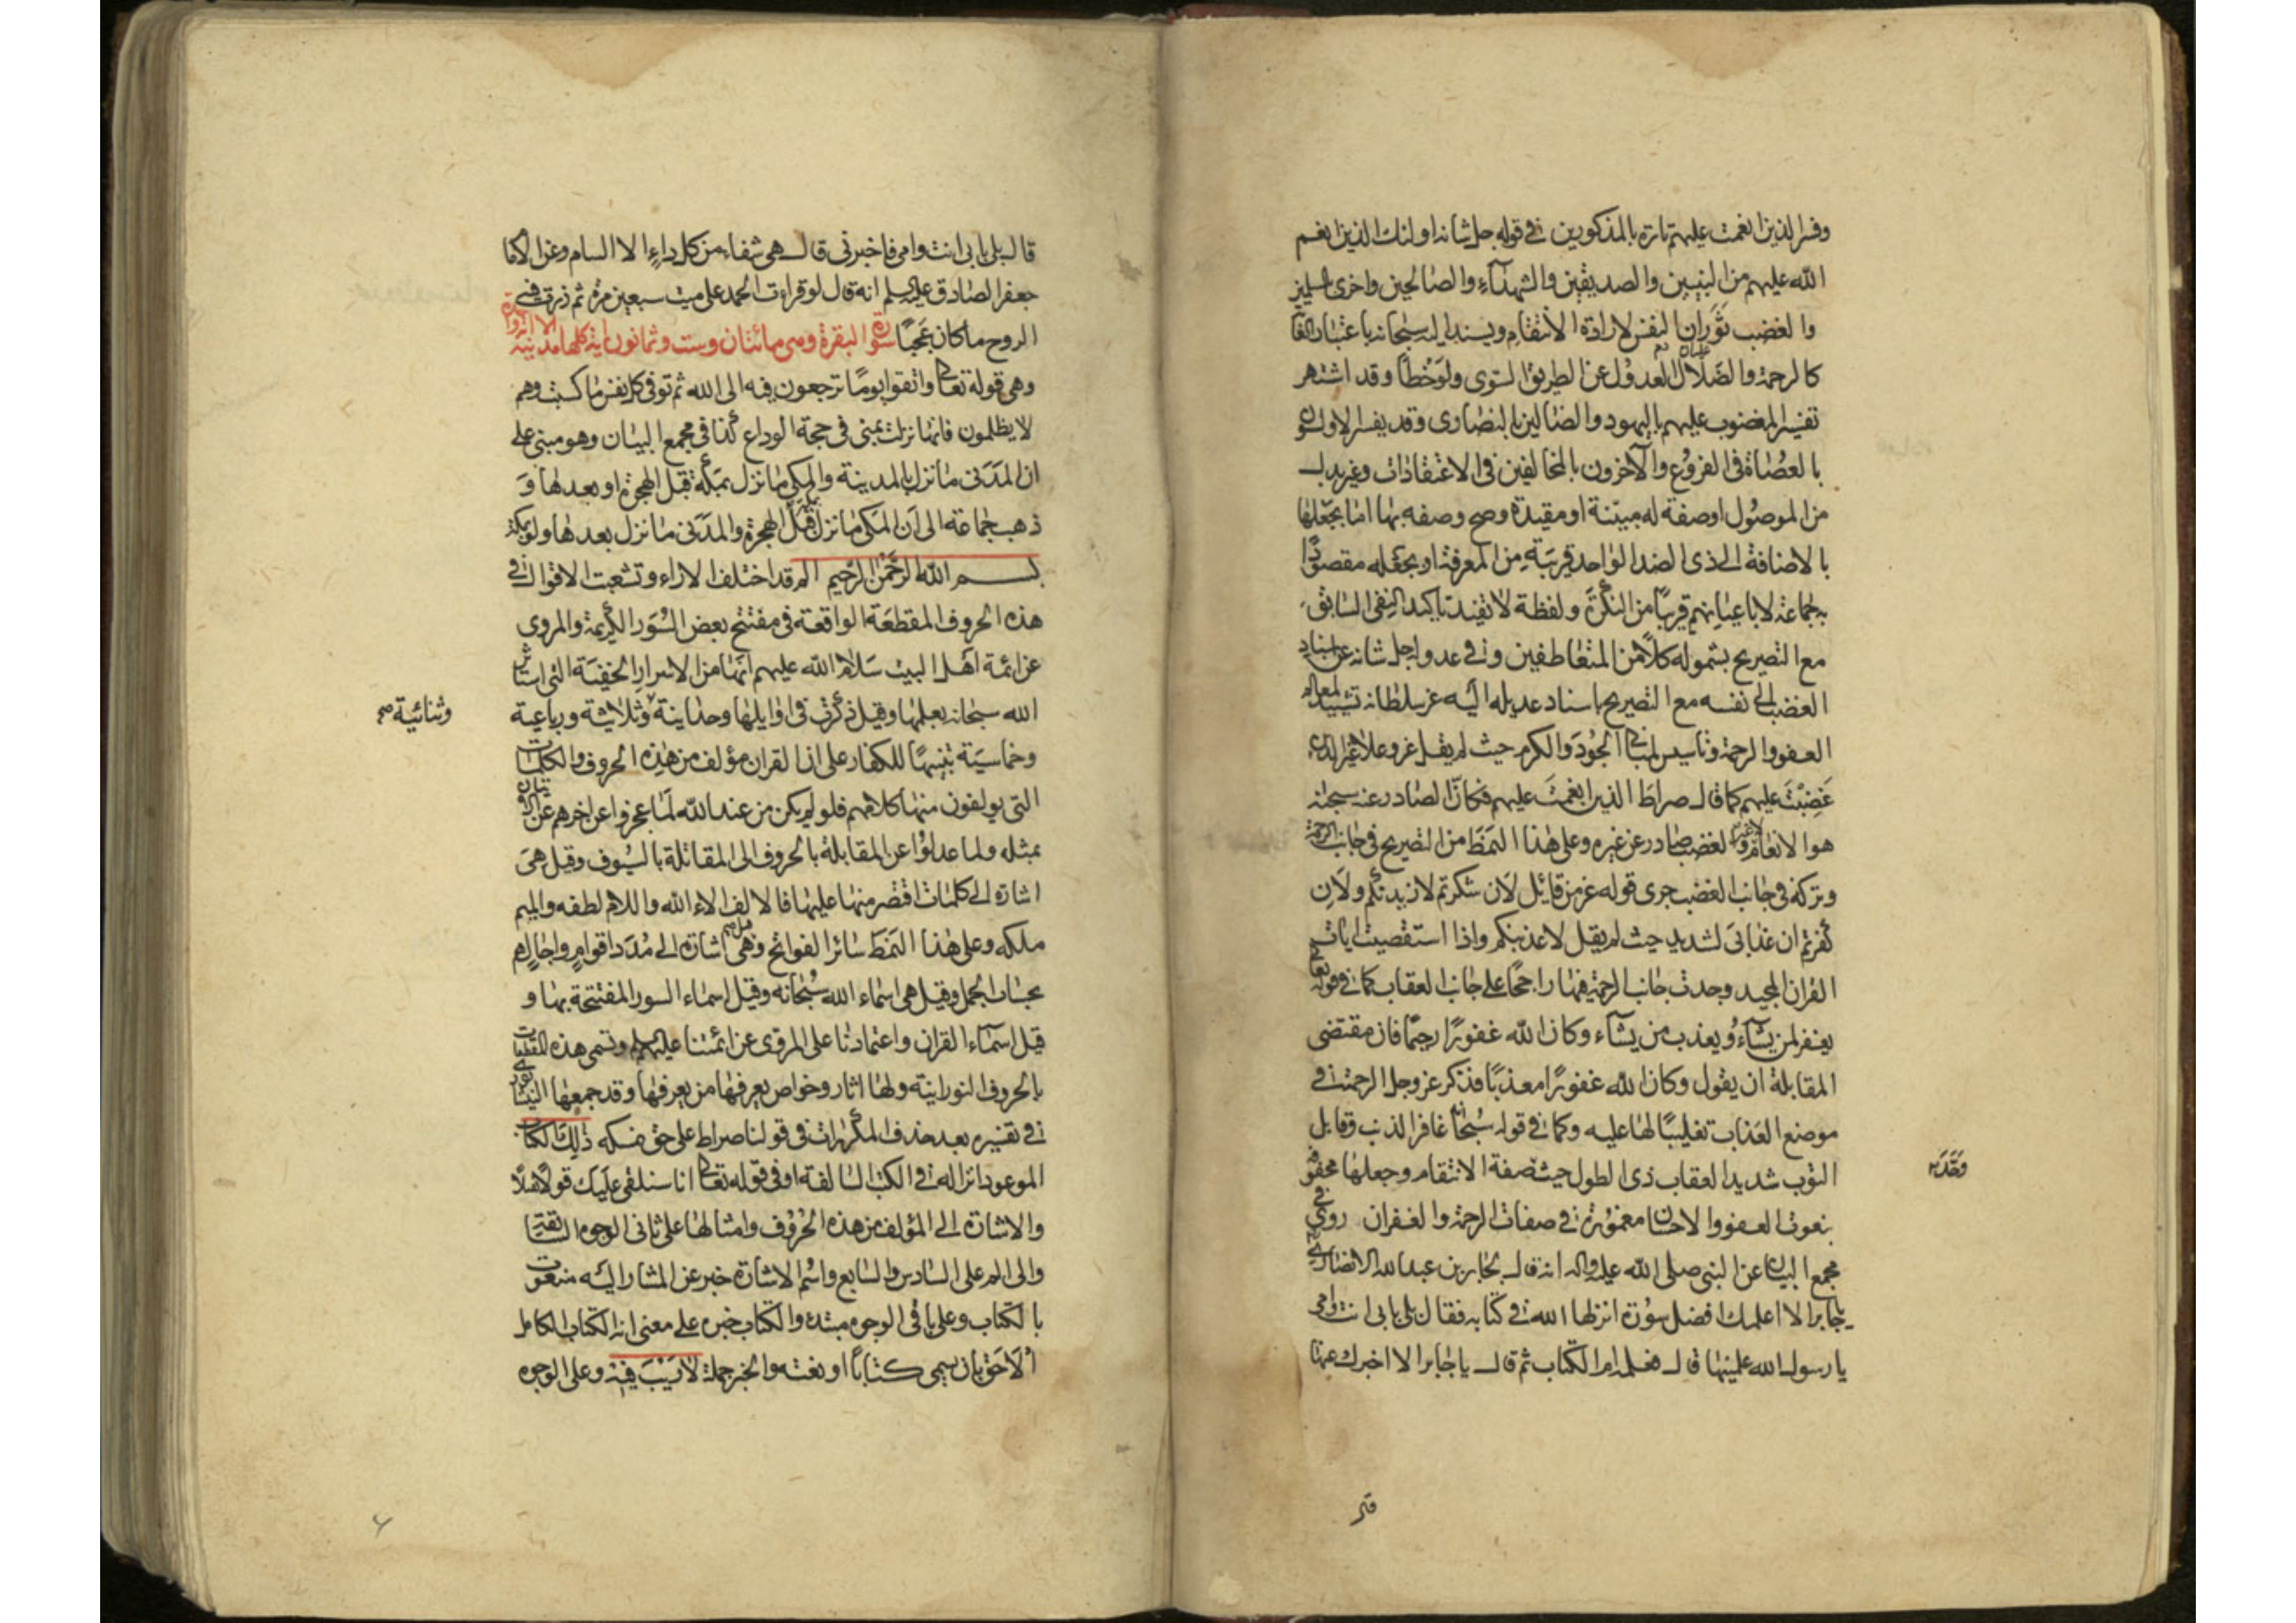 وفسر الذين انعمت عليهم تارة بالمذكورين في قوله جل شانه اولئك الذين انعم
الله عليهم من النبيين والصديقين والشهداء والصالحين واخرى بالمسلمين
والغضب ثوران النفس لارادة الانتقام ويسند اليه سبحانه باعتبار الغاية
كالرحمة والضلال العدول عن الطريق السوى ولو خطأ وقد اشتهر
تفسير المغضوب عليهم باليهود والضالين بالنصارى وقد يفسر الاولون
بالعصاة فى الفروع والآخرون بالمخالفين فى الاعتقادات وغير بدل
من الموصول او صفة له مبينة او مقيدة وصح وصفه بها اما بجعلها
بالاضافة الى ذى الضد الواحد قريبة من المعرفة او بجعله مقصودًا
به جماعة لا باعيانهم قريبًا من النكرة ولفظة لا تفيد تاكيد النفى السابق
مع التصريح بشموله كلاً من المتعاطفين وفي عدوله جل شانه عن اسناد
الغضب الى نفسه مع التصريح باسناد عديله اليه عز سلطانه تشييد لمعالم
العفو والرحمة وتاسيس لمبانى الجود والكرم حيث لم يقل عز وعلا غير الذين
غضبت عليهم كما قال صراط الذين انعمت عليهم فكان الصادر عنه سبحانه
هو الانعام لا غير والغضب صادر عن غيره وعلى هذا النمط من التصريح فى جانب الرحمة
وتركه فى جانب الغضب جرى قوله عز من قائل لان شكرتم لازيدنكم ولان
كفرتم ان عذابى لشديد حيث لم يقل لاعذبنكم واذا استقصيت ايات
القران المجيد وجدت جانب الرحمة فيها راجحًا على جانب العقاب كما في قوله تعالى
يغفر لمن يشآء ويعذب من يشآء وكان الله غفورًا رحيمًا فان مقتضى
المقابلة ان يقول وكان الله غفورًا معذبًا فذكر عز وجل الرحمة في
موضع العذاب تغليبًا لها عليه وكما في قوله سبحانه غافر الذنب وقابل
التوب شديد العقاب ذى الطول حيث صفة الانتقام وجعلها محفوفة
وحّد
بنعوت العفو والاحسان مغمورة في صفات الرحمة والغفران روى في
مجمع البيان عن النبي صلى الله عليه واله انه قال لجابر بن عبد الله الانصارى
يا جابر الا اعلمك افضل سورة انزلها الله في كتابه فقال بلى بابى انت وامى
يا رسول الله علمنيها قال فعلمه ام الكتاب ثم قال يا جابر الا اخبرك عنها
قال بلى بابى انت وامى فاخبرنى قال هى شفاء من كل داء الا السام وعن الامام
جعفر الصادق عليه السلم انه قال لو قرات الحمد على ميت سبعين مرة ثم ردت فيه
الروح ما كان عجبًا سورة البقرة وهى مائتان وست وثمانون اية كلها مدنية الا اية واحدة
وهى قوله تعالى واتقوا يومًا ترجعون فيه الى الله ثم توفى كل نفس ما كسبت وهم
لا يظلمون فانها نزلت بمنى فى حجة الوداع كذا فى مجمع البيان وهو مبنى على
ان المدنى ما نزل بالمدينة والمكى ما نزل بمكة قبل الهجرة او بعدها و
ذهب جماعة الى ان المكى ما نزل قبل الهجرة والمدنى ما نزل بعدها ولو بمكة
بسم الله الرحمن الرحيم الم قد اختلف الاراء وتشعبت الاقوال في
هذه الحروف المقطعة الواقعة فى مفتتح بعض السور الكريمة والمروى
عن ائمة اهل البيت سلام الله عليهم انها من الاسرار الخفية التى استاثر
الله سبحانه بعلمها وقيل ذكرت فى اوايلها وحدانية وثلاثية ورباعية
وثنائية صح
وخماسية تنبيهًا للكفار على ان القران مؤلف من هذه الحروف والكلمات
التى يولفون منها كلامهم فلو لم يكن من عند الله لما عجزوا عن اخرهم عن الاتيان
بمثله ولما عدلوا عن المقابلة بالحروف الى المقاتلة بالسيوف وقيل هى
اشارة الى كلمات اقتصر منها عليها فالالف الاء الله واللام لطفه والميم
ملكه وعلى هذا النمط سائر الفواتح وقيل هى اشارة الى مدد اقوام واجالهم
بحساب الجمل وقيل هى اسماء الله سبحانه وقيل اسماء السور المفتتحة بها و
قيل اسماء القران واعتمادنا على المروى عن ائمتنا عليهم السلم وتسمى هذه المقطعات
بالحروف النورانية ولها اثار وخواص يعرفها من يعرفها وقد جمعها النيشابورى
في تفسيره بعد حذف المكررات فى قولنا صراط على حق نمسكه ذلك الكتاب
الموعود انزاله في الكتب السالفة او فى قوله تعالى انا سنلقى عليك قولاً ثقيلاً
والاشارة الى المؤلف من هذه الحروف وامثالها على ثانى الوجوه السابقة
والى الم على السادس والسابع واسم الاشارة خبر عن المشار اليه منعوت
بالكتاب وعلى باقى الوجوه مبتدء والكتاب خبره على معنى انه الكتاب الكامل
الاحق بان يسمى كتابًا او نعته والخبر جملة لا ريب فيه وعلى الوجوه